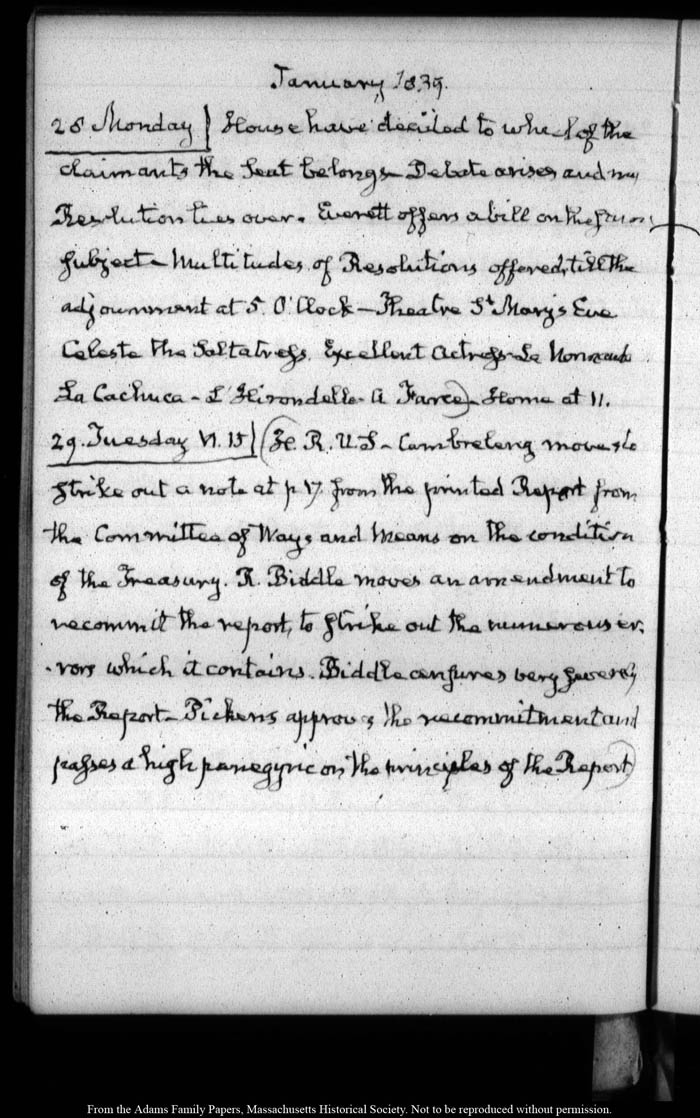 January 1839.
28. Monday | House have decided to which of the
claimants the Seat belongs – Debate arises and my
Resolution lies over. Everett offers a bill on the same
subject – Multitudes of Resolutions offered, till the
adjournment at 5. O'Clock – Theatre St Mary's Eve
Celeste the Saltatress. Excellent Actress – La
La Cachuca – L'Hirondelle. A Farce) – Home at 11.
29. Tuesday VI. 15 | (H. R. U. S – Cambreleng moves to
strike out a note at p 17 from the printed Report from
the Committee of Ways and Means on the condition
of the Treasury. R. Biddle moves an amendment to
recommit the report, to strike out the numerous er-
-rors which it contains. Biddle censures very severely
the Report – Pickens approves the recommitment and
passes a high panegyric on the principles of the Report)
From the Adams Family Papers, Massachusetts Historical Society. Not to be reproduced without permission.